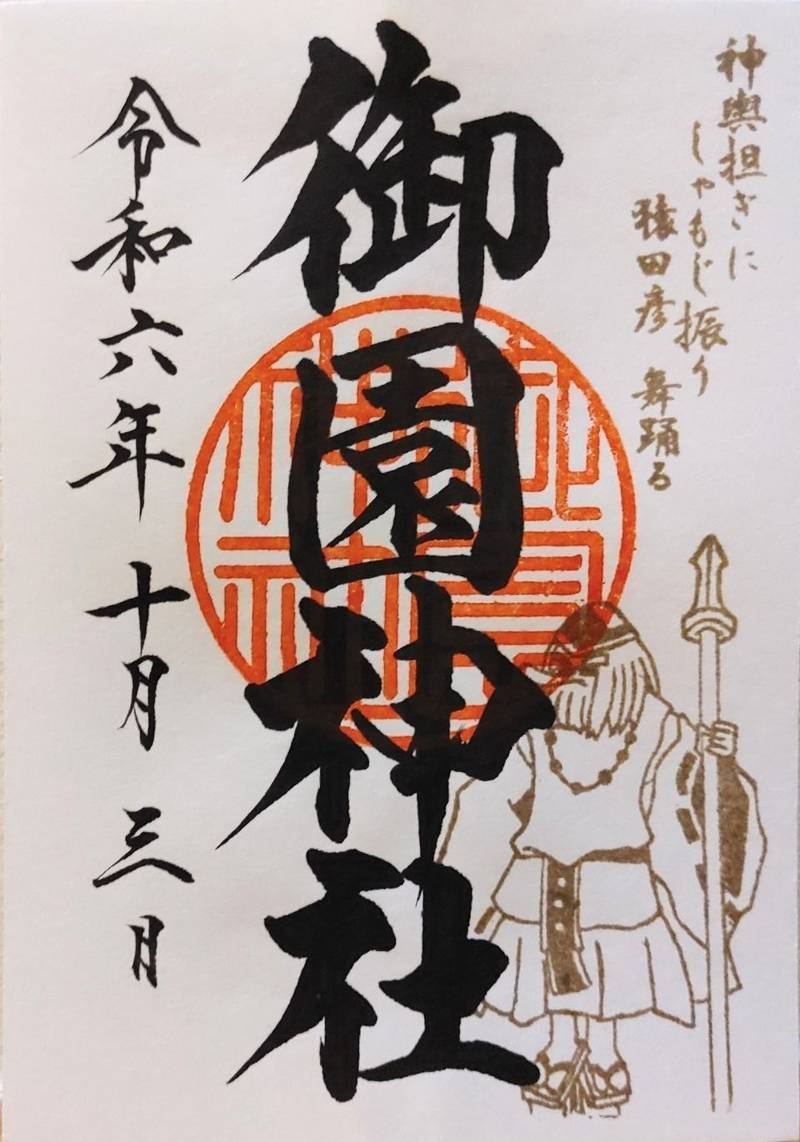 神輿担ぎに
しゃもじ振り
猿田彦 舞踊る
御園神社
令和六年 十月 三日